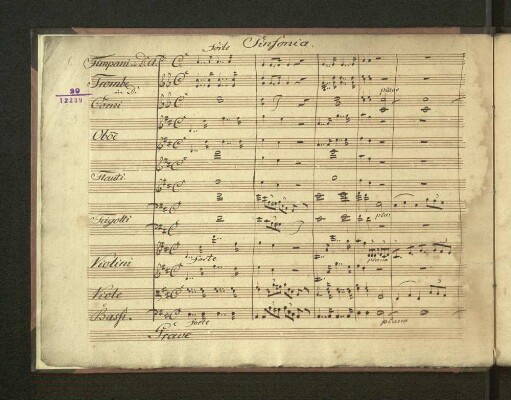 forte Sinfonia.
Timpani in D. A.
Trombe
in D.
Corni
piano
20
12239
Oboe
Flauti
Fagotti
pia:
Violini
forte
piano
Viole
Bassi.
forte
piano
Grave